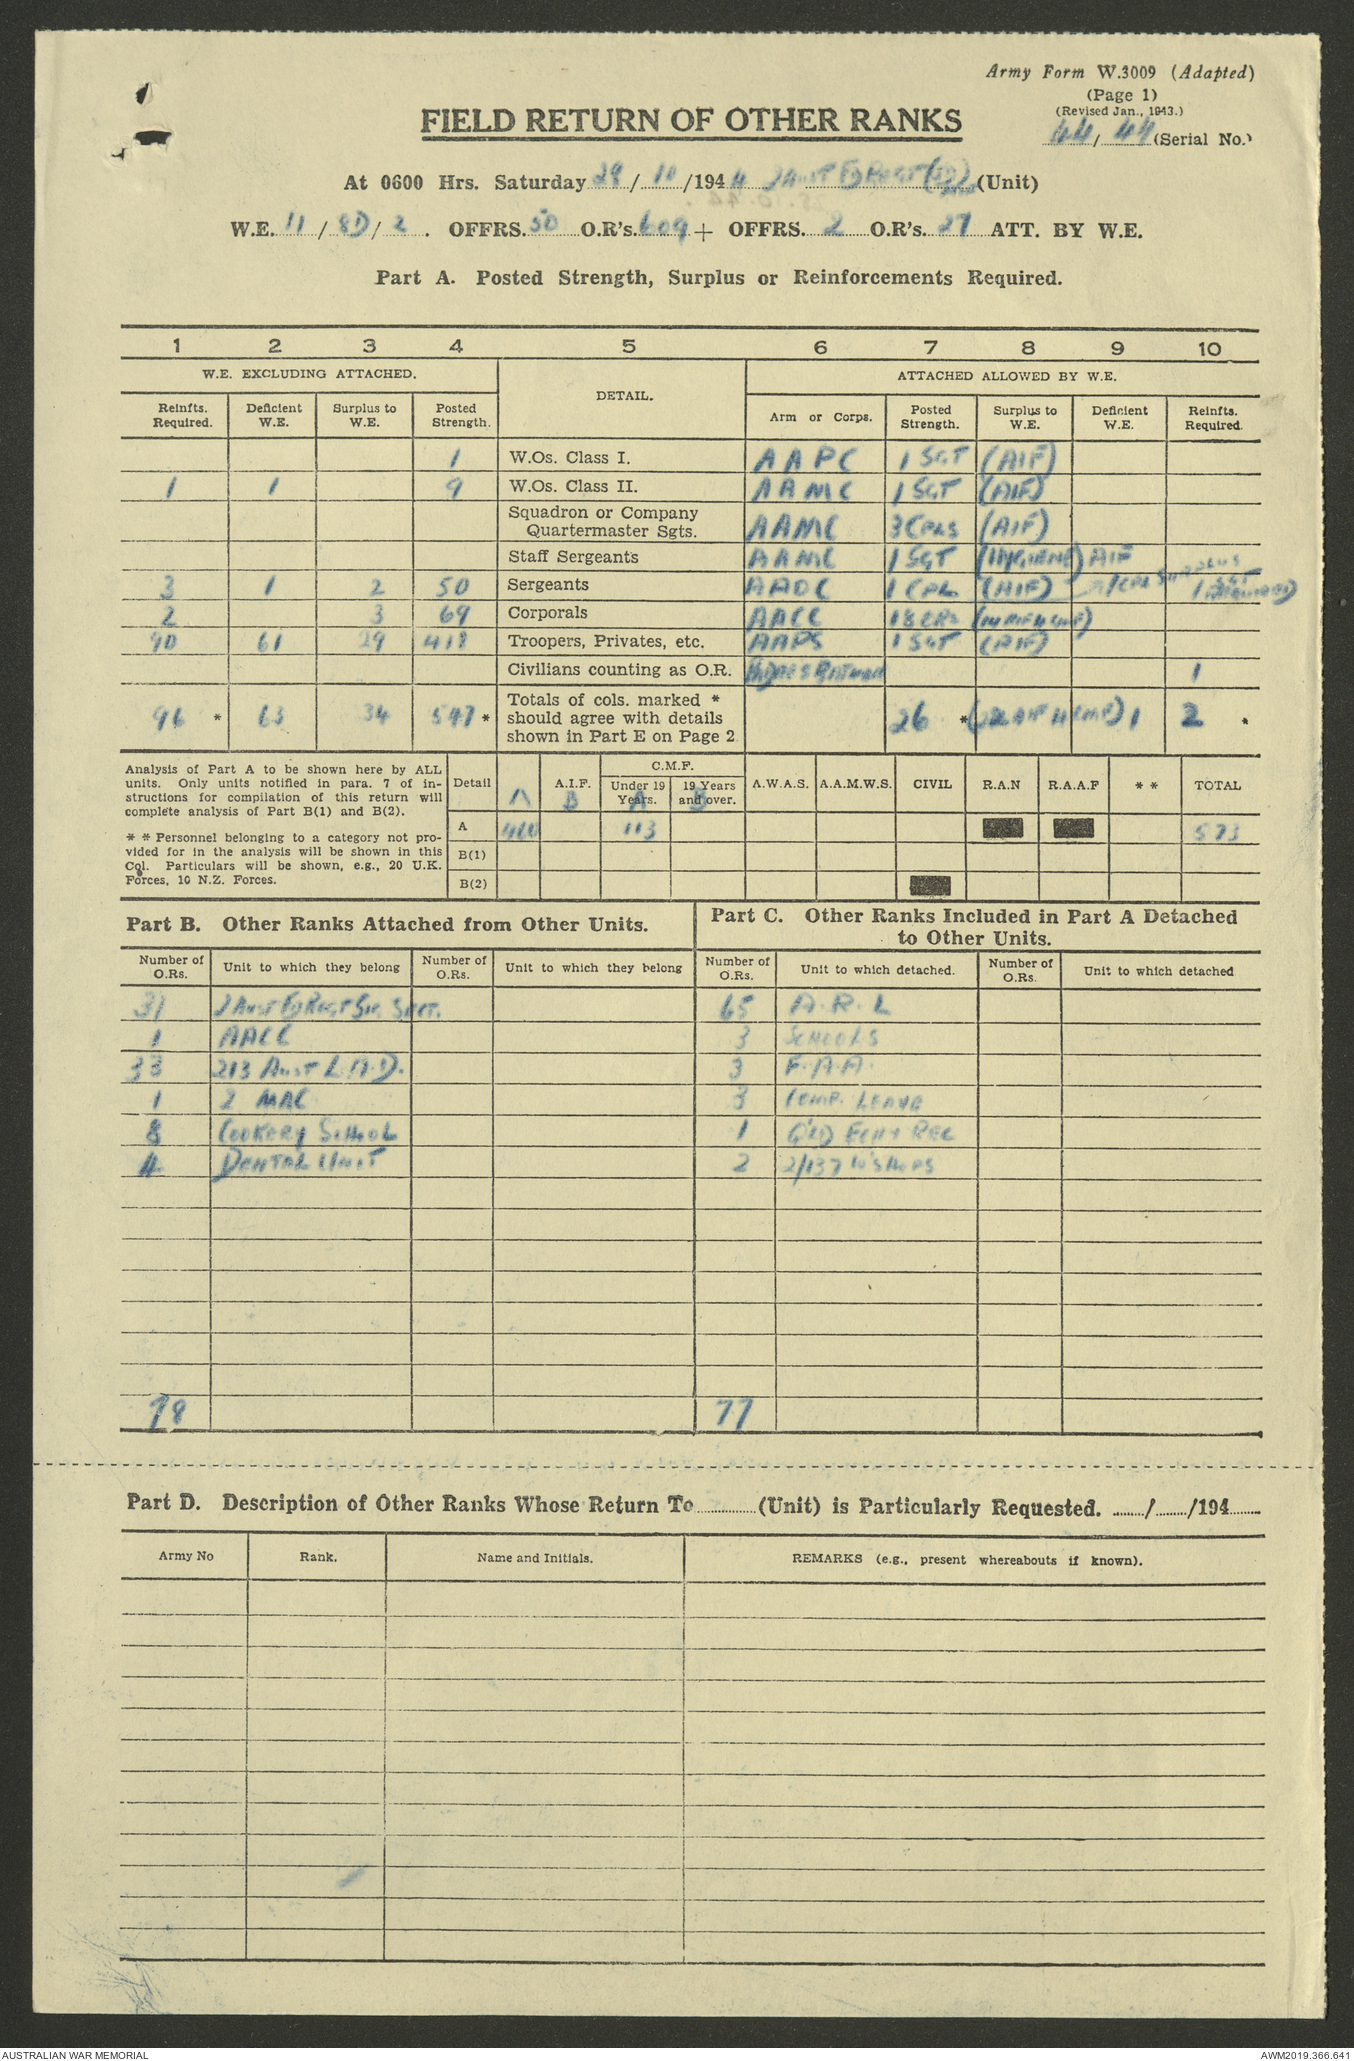 Army Form W.3009 (Adapted)
(Page 1)
(Revised Jan., 1943.)
44/44 (Serial No.)
FIELD RETURN OF OTHER RANKS
At 0600 Hrs. Saturday 28/10/1944 2 Aust Fd Regt (Unit)
W.E. 11/8D/2. OFFRS. 50 O.R's. 609 + OFFRS. 2 O.R's. 27 ATT. BY W.E.
Part A. Posted Strength, Surplus or Reinforcements Required.
1 2 3 4 5 6 7 8 9 10
W.E. EXCLUDING ATTACHED. DETAIL. ATTACHED ALLOWED BY W.E.
Reinfts. Required. Deficient W.E. Surplus to W.E. Posted Strength. Arm or Corps. Posted Strength. Surplus to W.E. Deficient W.E. Reinfts. Required.
1 W.Os. Class I. AAPC 1 SGT (AIF)
1 1 9 W.Os. Class II. AAMC 1 SGT (AIF)
Squadron or Company Quartermaster Sgts. AAMC 3 CPLS (AIF)
Staff Sergeants AAMC 1 SGT (HYGIENE) AIF
3 1 2 50 Sergeants AADC 1 CPL (AIF) 1 CPL SURPLUS 1 SGT REQUIRED)
2 3 69 Corporals AACC 18
90 61 29 418 Troopers, Privates, etc. AAPS 1 SGT (AIF)
Civilians counting as O.R. 1
96 * 63 34 547 * Totals of cols. marked * should agree with details shown in Part E on Page 2. 26 * (22 AIF 4 CMF) 1 2 *
Analysis of Part A to be shown here by ALL
units. Only units notified in para. 7 of in-
structions for compilation of this return will
complete analysis of Part B(1) and B(2).
* * Personnel belonging to a category not pro-
vided for in the analysis will be shown in this
Col. Particulars will be shown, e.g., 20 U.K.
Forces, 10 N.Z. Forces.
Detail A.I.F. C.M.F. Under 19 Years. 19 Years and over. A.W.A.S. A.A.M.W.S. CIVIL R.A.N R.A.A.F * * TOTAL
A B A B
A 460 113 573
B(1)
B(2)
Part B. Other Ranks Attached from Other Units.
Number of O.Rs. Unit to which they belong Number of O.Rs. Unit to which they belong
31 2 Aust Fd Regt Sig Sect.
1 AACC
33 213 Aust L.A.D.
1 2 MAC
8 Cookery School
4 Dental Unit
78
Part C. Other Ranks Included in Part A Detached
to Other Units.
Number of O.Rs. Unit to which detached. Number of O.Rs. Unit to which detached
65 A.R.L
3 Schools
3 F.A.A.
3 Comp. Leave
1 G'LD
2 2/137 W'shops
77
Part D. Description of Other Ranks Whose Return To (Unit) is Particularly Requested. / /194
Army No Rank. Name and Initials. REMARKS (e.g., present whereabouts if known).
AUSTRALIAN WAR MEMORIAL AWM2019.366.641